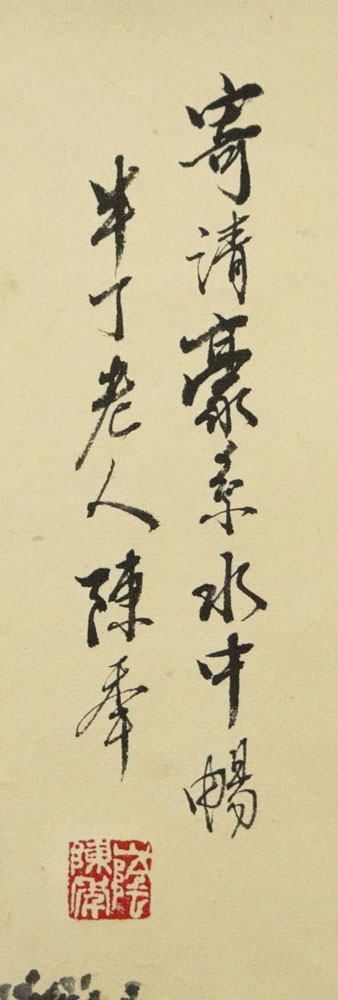 寄請豪素水中暢
半丁老人陳年
山陰陳年